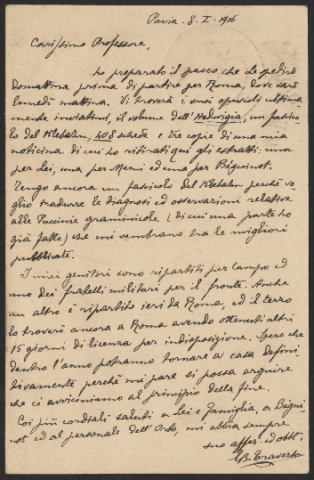 Pavia. 8. I. 1916
Carissimo Professore,
Ho preparato il pacco che Le spedirò
domattina prima di partire per Roma, dove sarò
lunedì mattina. Vi troverà i suoi opuscoli ultima-
mente inviatimi, il volume dell'Hedwigia, un fascico-
lo del Klebahn, 408 schede e tre copie di una mia
noticina di cui ho ritirati qui gli estratti: una
per Lei, una per Menni ed una per Béguinot.
Tengo ancora un fascicolo del Klebahn perché vo-
glio tradurre le diagnosi ed osservazioni relative
alle Puccinie graminicole (di cui una parte ho
già fatto) che mi sembrano tra le migliori
pubblicate.
I miei genitori sono ripartiti per Campo ed
uno dei fratelli militari per il fronte. Anche
un altro è ripartito ieri da Roma, ed il terzo
lo troverò ancora a Roma avendo ottenuti altri
15 giorni di licenza per indisposizione. Spero che
dentro l'anno potranno tornare a casa defini-
tivamente perché mi pare si possa arguire
che ci avviciniamo al principio della fine.
Coi più cordiali saluti a Lei e famiglia, a Bégui-
not ed al personale dell'Orto, mi abbia sempre
suo affez. ed obbl.
GB. Traverso